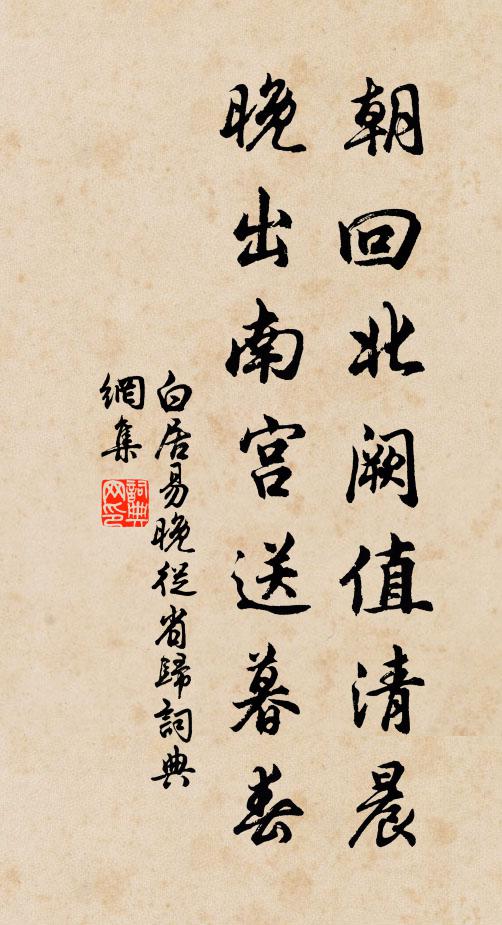 朝回北阙值清晨
晚出南宫送暮春
白居易晚從省歸詞典
網集
詞典
网印